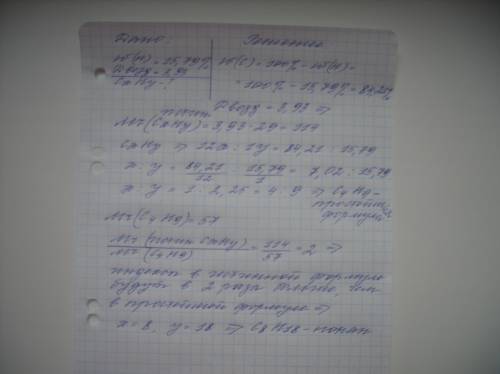 Дано: Решение
w(H) = 15,79% w(C) = 100% - w(H) =
Dвозд = 3,93 = 100% - 15,79% = 84,21%
CxHy - ? Dвозд = 3,93 =>
Mr(CxHy) = 3,93 · 29 = 114
CxHy => 12x : 1y = 84,21 : 15,79
x : y = 84,21/12 : 15,79/1 = 7,02 : 15,79
x : y = 1 : 2,25 = 4 : 9 => C4H9 -
простейш.
формула
Mr(C4H9) = 57
Mr(истин CxHy)/Mr(C4H9) = 114/57 = 2 =>
индексы в истинной формуле
будут в 2 раза больше, чем
в простейшей формуле =>
x = 8, y = 18 => C8H18 -